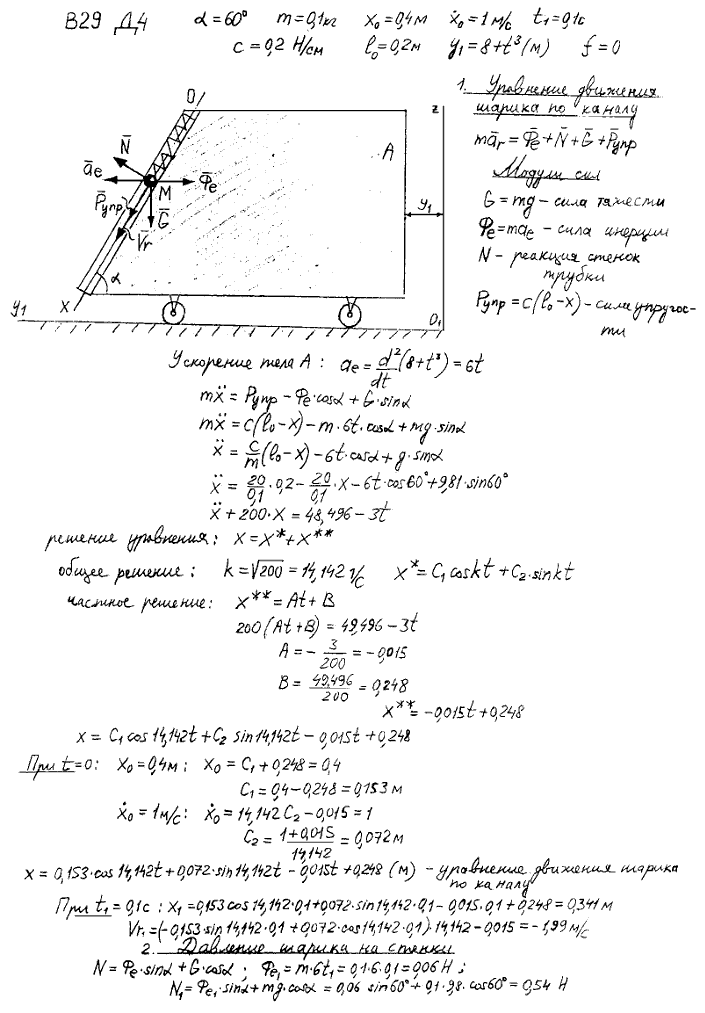 В29 Д4 α = 60° m = 0,1 кг x₀ = 0,4 м ẋ₀ = 1 м/с t₁ = 0,1 с
c = 0,2 Н/см l₀ = 0,2 м y₁ = 8 + t³ (м) f = 0
1. Уравнение движения
шарика по каналу
mā_r = Φ̄_e + N̄ + Ḡ + P̄_упр
Модули сил
G = mg – сила тяжести
Φ_e = ma_e – сила инерции
N – реакция стенок
трубки
P_упр = c(l₀ – x) – сила упругос-
ти
O
z
N̄
A
ā_e
Φ̄_e
M
P̄_упр
Ḡ
V̄_r
y₁
α
x
y₁
O₁
Ускорение тела A: a_e = d²/dt (8 + t³) = 6t
mẍ = P_упр – Φ_e·cosα + G·sinα
mẍ = c(l₀ – x) – m·6t·cosα + mg·sinα
ẍ = c/m (l₀ – x) – 6t·cosα + g·sinα
ẍ = 20/0,1 · 0,2 – 20/0,1 · x – 6t·cos60° + 9,81·sin60°
ẍ + 200·x = 48,496 – 3t
решение уравнения: x = x* + x**
общее решение: k = √200 = 14,142 1/с x* = C₁coskt + C₂·sinkt
частное решение: x** = At + B
200(At + B) = 49,496 – 3t
A = – 3/200 = –0,015
B = 49,496/200 = 0,248
x** = –0,015t + 0,248
x = C₁cos14,142t + C₂ sin14,142t – 0,015t + 0,248
При t=0: x₀ = 0,4 м: x₀ = C₁ + 0,248 = 0,4
C₁ = 0,4 – 0,248 = 0,153 м
ẋ₀ = 1 м/с: ẋ₀ = 14,142 C₂ – 0,015 = 1
C₂ = (1 + 0,015)/14,142 = 0,072 м
x = 0,153·cos14,142t + 0,072·sin14,142t – 0,015t + 0,248 (м) – уравнение движения шарика
по каналу
При t₁ = 0,1с: x₁ = 0,153cos14,142·0,1 + 0,072·sin14,142·0,1 – 0,015·0,1 + 0,248 = 0,341 м
Vr₁ = (–0,153·sin14,142·0,1 + 0,072·cos14,142·0,1)·14,142 – 0,015 = –1,99 м/с
2. Давление шарика на стенки
N = Φ_e·sinα + G·cosα ; Φ_e₁ = m·6t₁ = 0,1·6·0,1 = 0,06 Н ;
N₁ = Φ_e₁·sinα + mg·cosα = 0,06 sin60° + 0,1·9,8·cos60° = 0,54 Н